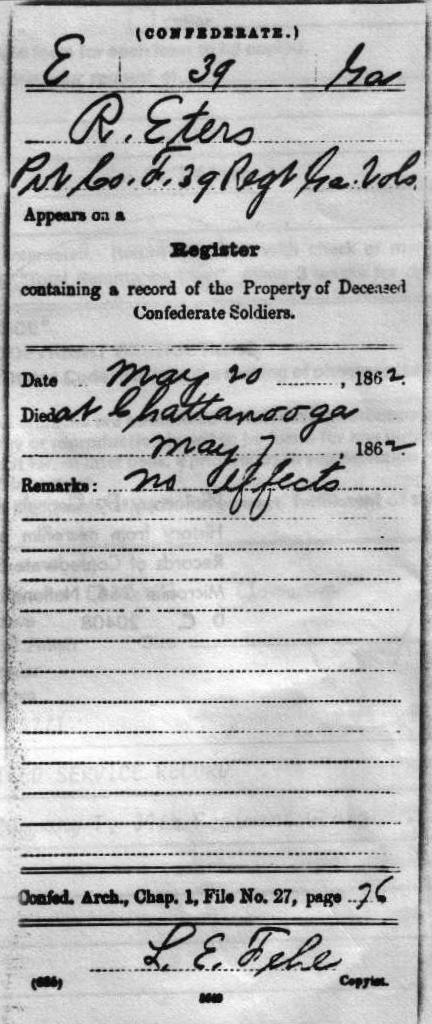 (CONFEDERATE.)
E 39 Ga
R. Eters
Pvt Co. F. 39 Regt Ga. Vols.
Appears on a
Register
containing a record of the Property of Deceased
Confederate Soldiers.
Date May 20, 1862.
Died at Chattanooga
May 7, 1862
Remarks: no effects
History from
Records of Confederate
D C 20408
SERVICE RECORD
Confed. Arch., Chap. 1, File No. 27, page 76
L. E. Fehe
(635) Copyist.